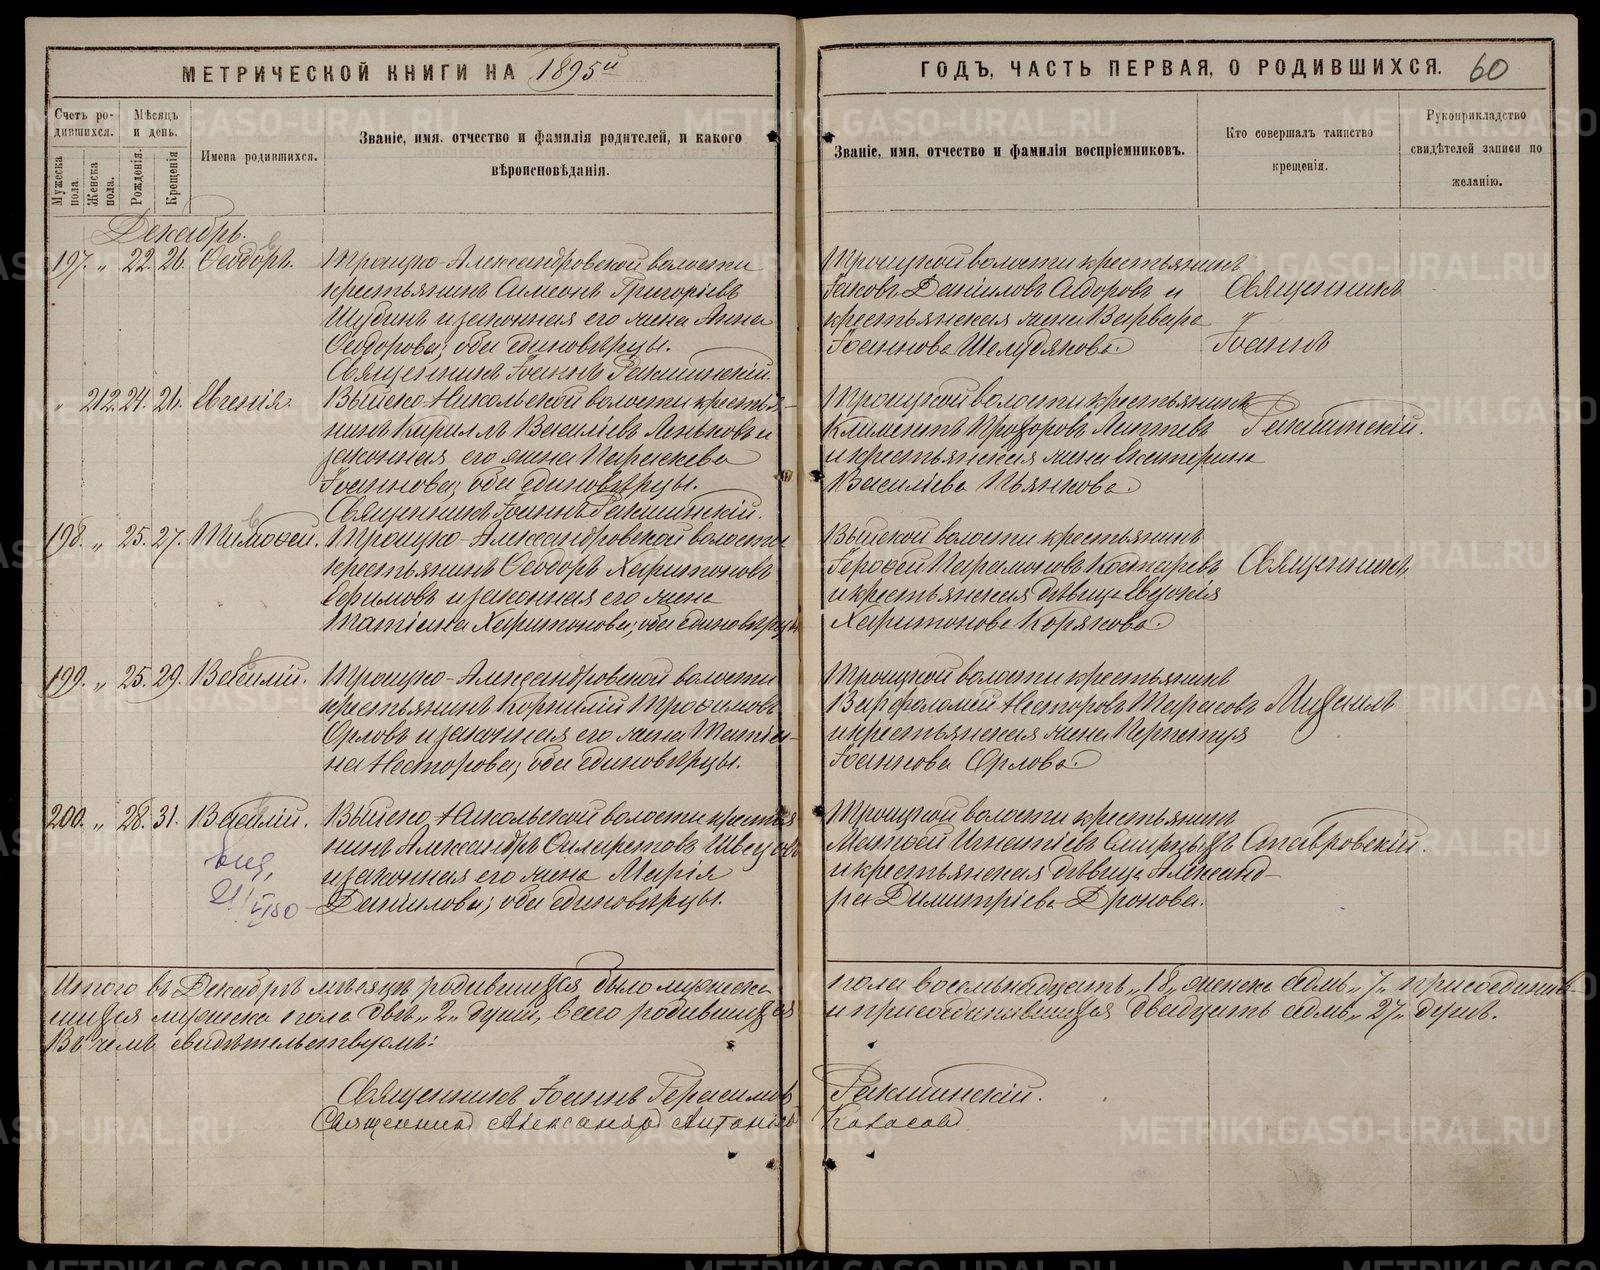 МЕТРИЧЕСКОЙ КНИГИ НА 1895й
Счетъ ро-
дившихся.
Мѣсяцъ
и день.
Мужеска
пола.
Женска
пола.
Рожденія.
Крещенія
Имена родившихся.
Званіе, имя, отчество и фамилія родителей, и какого
вѣроисповѣданія.
Декабрь.
197. „ 22. 26. Ѳеодоръ.
Троицко-Александровской волости
крестьянинъ Симеонъ Григоріевъ
Шубинъ и законная его жена Анна
Ѳеодорова; оба единовѣрцы.
Священникъ Іоаннъ Ракшинскій.
„ 212. 24. 26. Евгенія.
Выйско-Никольской волости крестья-
нинъ Кириллъ Васильевъ Леньковъ и
законная его жена Параскева
Іоаннова; оба единовѣрцы.
Священникъ Іоаннъ Ракшинскій.
198. „ 25. 27. Тимоѳей.
Троицко-Александровской волости
крестьянинъ Ѳеодоръ Харитоновъ
Ефимовъ и законная его жена
Татіана Харитонова; оба единовѣрцы.
199. „ 25. 29. Василій.
Троицко-Александровской волости
крестьянинъ Корнилій Трофимовъ
Орловъ и законная его жена Татіа-
на Несторова; оба единовѣрцы.
200. „ 28. 31. Василій.
Выйско-Никольской волости крестья
нинъ Александръ Филаретовъ Швецовъ
и законная его жена Марія
Даніилова; оба единовѣрцы.
Итого въ Декабрѣ мѣсяцѣ родившихся было мужеска
шихся мужеска пола двѣ „2„ души, всего родившихся
Въ чемъ свидѣтельствуемъ:
Священникъ Іоаннъ Герасимовъ
Священник Александр Антоніев
ГОДЪ, ЧАСТЬ ПЕРВАЯ, О РОДИВШИХСЯ. 60
Званіе, имя, отчество и фамилія воспріемниковъ.
Кто совершалъ таинство
крещенія.
Рукоприкладство
свидѣтелей записи по
желанію.
Троицкой волости крестьянинъ
Іаковъ Даніиловъ Сидоровъ и
крестьянская жена Варвара
Іоаннова Шелудякова.
Священникъ
Іоаннъ
Троицкой волости крестьянинъ
Климентъ Прохоровъ Лаптевъ
и крестьянская жена Екатерина
Васильева Пьянкова.
Ракшинскій.
Выйской волости крестьянинъ
Іероѳей Парамоновъ Костаревъ
и крестьянская дѣвица Евдокія
Харитонова Корякова.
Священникъ
Троицкой волости крестьянинъ
Варфоломей Несторовъ Тарасовъ
и крестьянская жена Перпетуя
Іоаннова Орлова.
Михаилъ
Троицкой волости крестьянинъ
Матѳей Игнатіевъ Смирныхъ
и крестьянская дѣвица Александ-
ра Димитріева Дронова.
Ставровскій.
пола восемьнадцать „18„ женска седмь „7„ присоединив-
и присоединившихся двадцать седмь „27„ душъ.
Ракшинскій.
METRIKI.GASO-URAL.RU